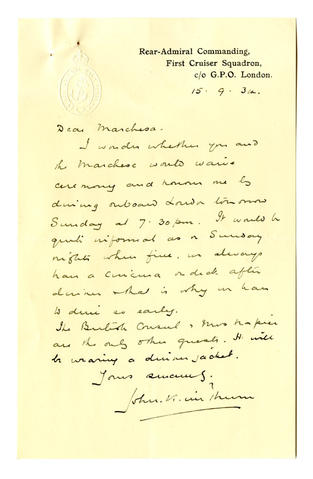 Rear-Admiral Commanding,
First Cruiser Squadron,
c/o G.P.O. London.
15. 9. 34.
Dear Marchesa.
I wonder whether you and
the Marchese would waive
ceremony and honour me by
dining onboard London tomorrow
Sunday at 7.30pm. It would be
quite informal as on Sunday
nights when fine, we always
have a cinema on deck after
dinner & that is why we have
to dine so early.
The British Consul & Mrs Napier
are the only other guests. I will
be wearing a dinner jacket.
Yours sincerely.
John. K. im Thurn